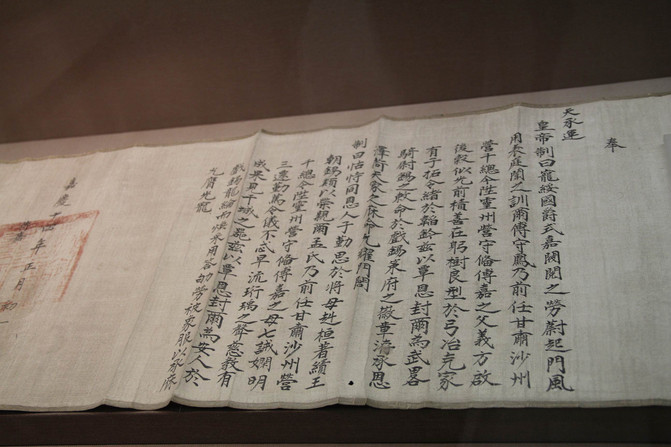 奉
天承運
皇帝制曰寵綏國爵式嘉閥閱之勞蔚起門風
用表庭闈之訓爾傅守鳳乃前任甘肅沙州
營千總今陞靈州營守備傅嘉之父義方啟
後穀似光前積善在躬樹良型於弓冶克家
有子拓令緒於韜鈐茲以覃恩封爾為武畧
騎尉錫之敕命於戲錫策府之徽章濬承恩
澤荷天家之庥命允耀門閭
制曰怙恃同恩人子勤思於將母赳桓著績王
朝錫類以榮親爾王氏乃前任甘肅沙州營
千總今陞靈州營守備傅嘉之母七誡嫻明
三遷勤篤令儀不忒早流珩瑀之聲慈教有
成果見干城之器茲以覃恩封爾為安人於
戲錫龍綸而煥采用答劬勞被象服以承庥
允膺光寵
嘉慶十四年正月初一